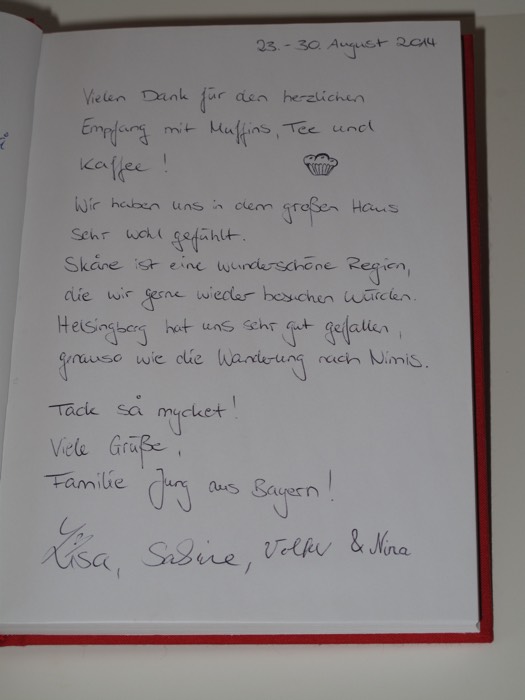 23. - 30. August 2014
Vielen Dank für den herzlichen
Empfang mit Muffins, Tee und
Kaffee!
Wir haben uns in dem großen Haus
sehr wohl gefühlt.
Skåne ist eine wunderschöne Region,
die wir gerne wieder besuchen würden.
Helsingborg hat uns sehr gut gefallen,
genauso wie die Wanderung nach Nimis.
Tack så mycket!
Viele Grüße,
Familie Jung aus Bayern!
Lisa, Sabine, Volker & Nina